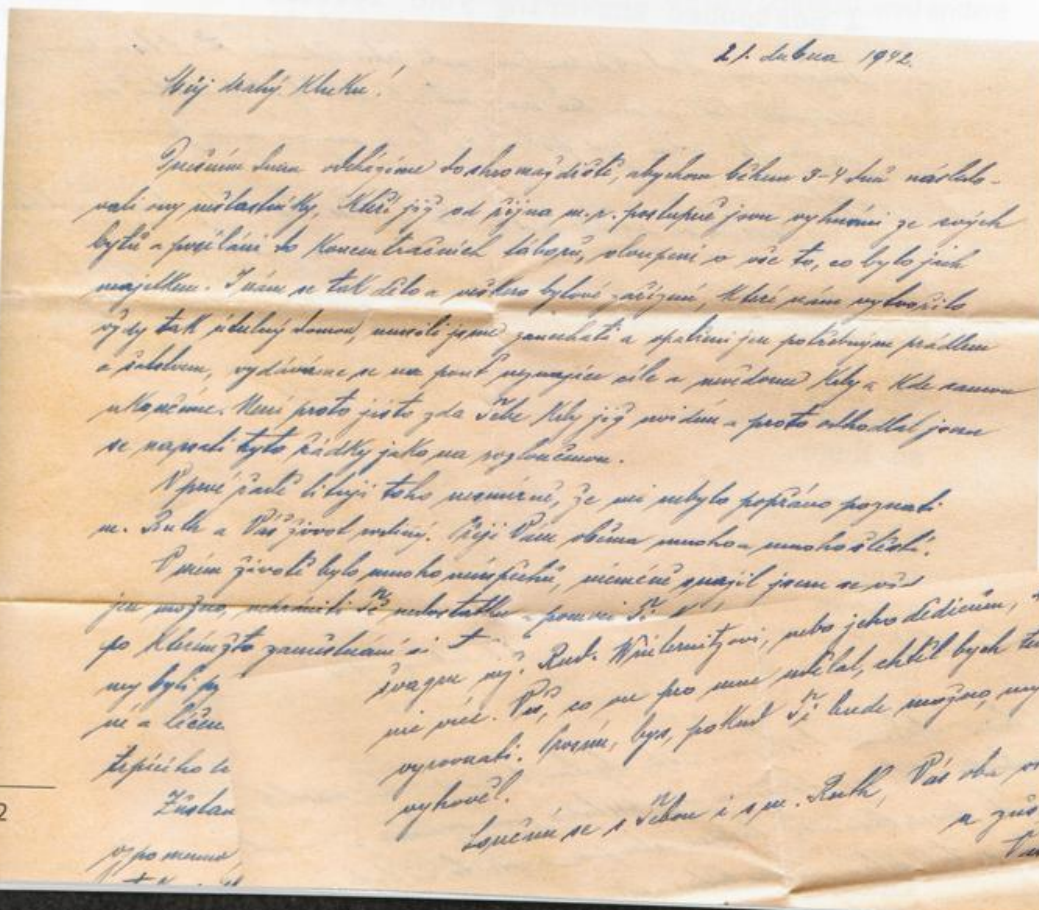 21. dubna 1942.
Můj drahý kluku!
Dnešním dnem odcházíme do shromaždiště, abychom během 3-4 dnů násled-
vali ony nešťastníky, kteří již od října m. r. postupně jsou vyháněni ze svých
bytů a posíláni do koncentračních táborů, oloupeni o vše to, co bylo jich
majetkem. I nám se tak dělo a veškero bytové zařízení, které nám vytvořilo
vždy tak útulný domov, museli jsme zanechati a opatřeni jen potřebným prádlem
a šatstvem, vydáváme se na pouť neznajíce cíle a nevědouce kdy a kde samou
ukončíme. Není proto jisto zda Tebe kdy již uvidím a proto odhodlal jsem
se napsati tyto řádky jako na rozloučenou.
V prvé řadě lituji toho nesmírně, že mi nebylo popřáno poznati
m. Ruth a Váš život rodinný. Přeji Vám oběma mnoho a mnoho štěstí.
V mém životě bylo mnoho neúspěchů, nicméně snažil jsem se vždy
jen možno, uchrániti Tě nedostatku a pomoci Ti
po kterémžto zaměstnání si
my byli
né a léčen
trpícího
Zůstan
vzpomene
švagru mj. Rud. Winternitzovi, nebo jeho dědicům,
nic více. Vše, co on pro mne udělal, chtěl bych
vyrovnati. Prosím, bys, pokud Ti bude možno,
vyhověl.
Loučím se s Tebou i s m. Ruth, Vás oba
a zůs